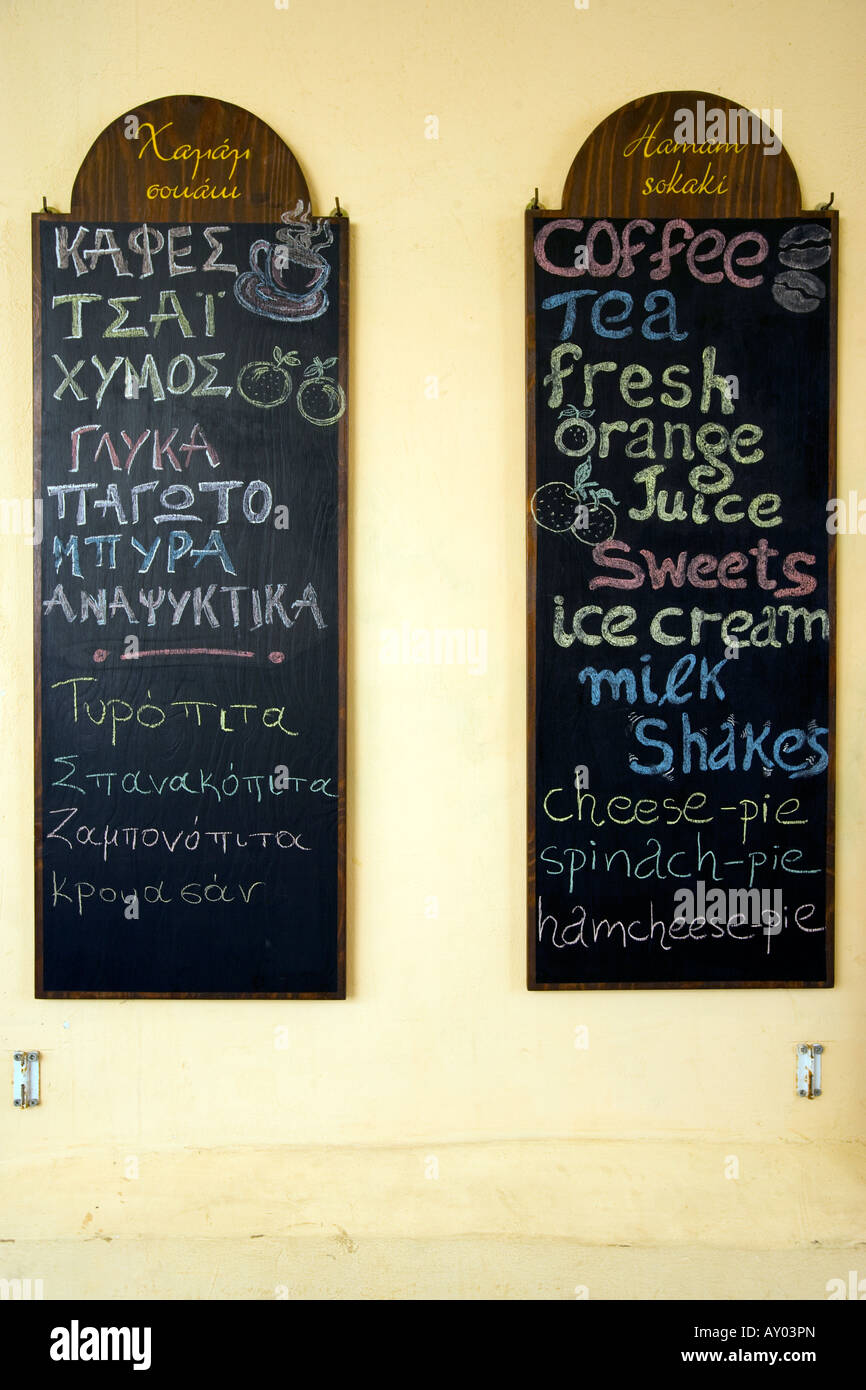 Χαμάμ
σοκάκι
ΚΑΦΕΣ
ΤΣΑΪ
ΧΥΜΟΣ
ΓΛΥΚΑ
ΠΑΓΩΤΟ
ΜΠΥΡΑ
ΑΝΑΨΥΚΤΙΚΑ
Τυρόπιτα
Σπανακόπιτα
Ζαμπονόπιτα
κρουασάν
Hamam
sokaki
Coffee
Tea
fresh
orange
Juice
Sweets
ice cream
milk
Shakes
cheese-pie
spinach-pie
hamcheese-pie
alamy
Image ID: AY03PN
www.alamy.com